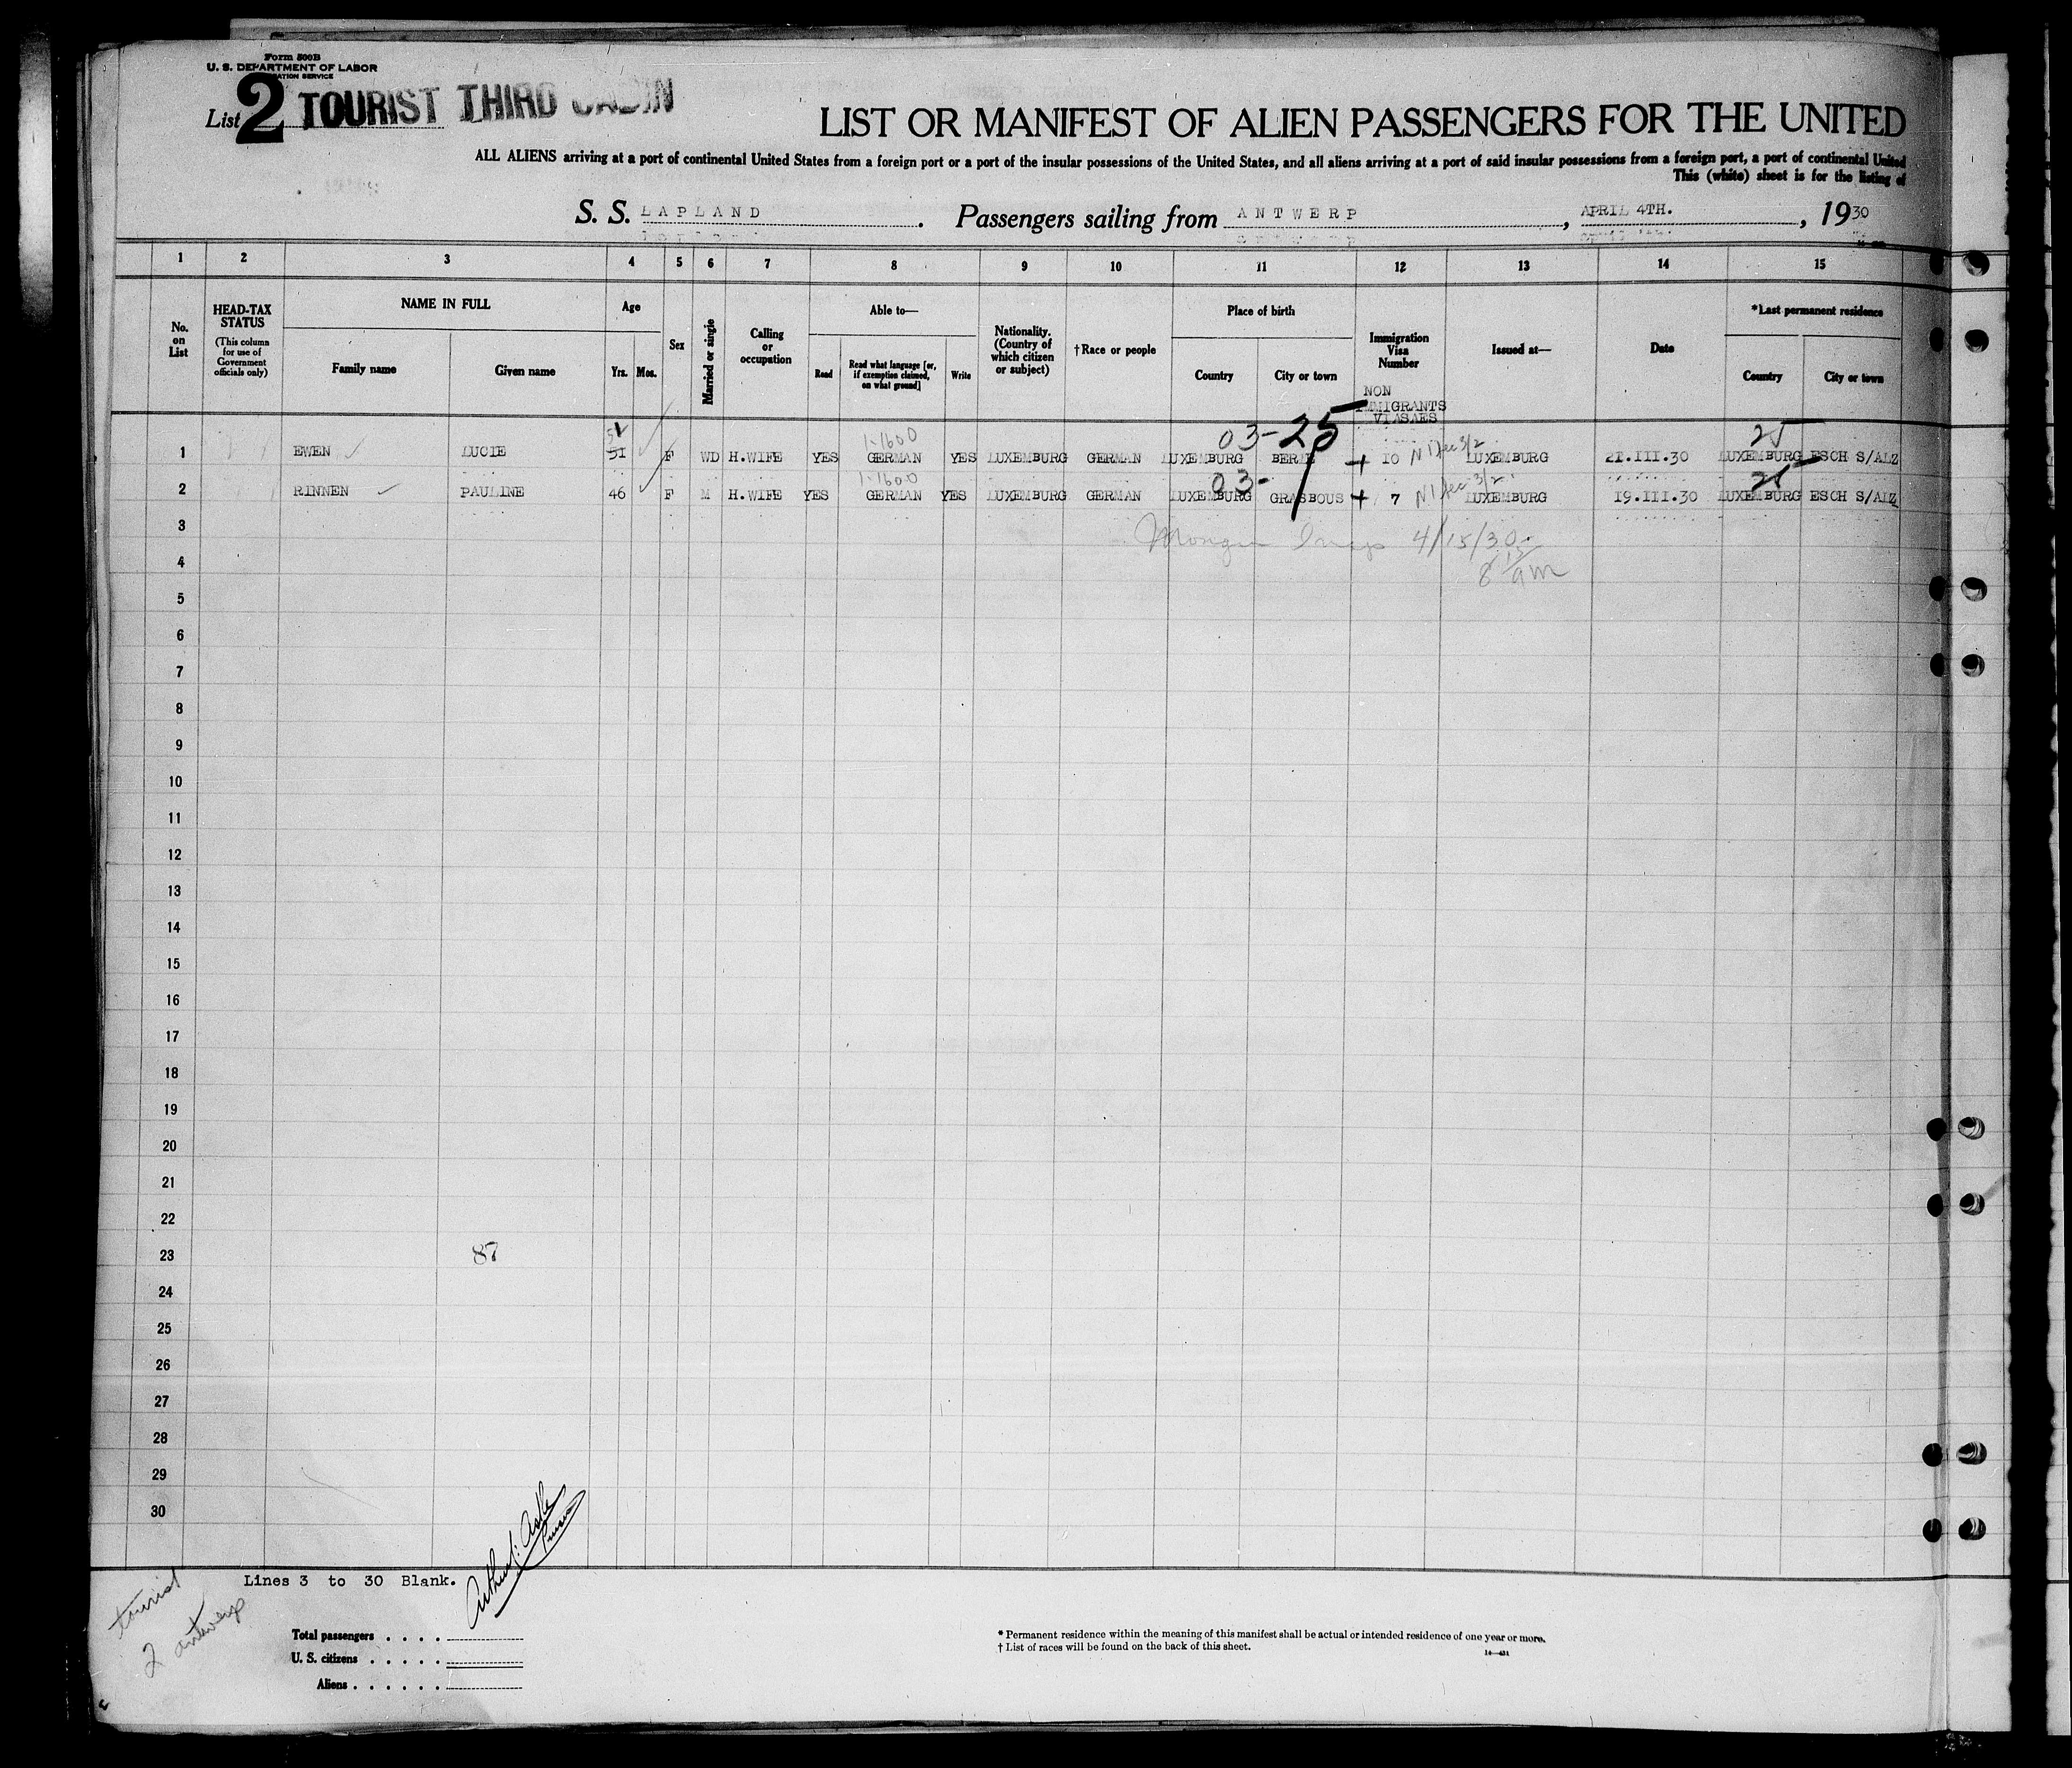 Form 500B
U. S. DEPARTMENT OF LABOR
List 2 TOURIST THIRD CABIN
LIST OR MANIFEST OF ALIEN PASSENGERS FOR THE UNITED
ALL ALIENS arriving at a port of continental United States from a foreign port or a port of the insular possessions of the United States, and all aliens arriving at a port of said insular possessions from a foreign port, a port of continental United
This (white) sheet is for the listing of
S. S. LAPLAND. Passengers sailing from ANTWERP, APRIL 4TH., 1930
1 2 3 4 5 6 7 8 9 10 11 12 13 14 15
No. on List
HEAD-TAX STATUS (This column for use of Government officials only)
NAME IN FULL
Family name Given name
Age
Yrs. Mos.
Sex
Married or single
Calling or occupation
Able to—
Read Read what language [or, if exemption claimed, on what ground] Write
Nationality. (Country of which citizen or subject)
†Race or people
Place of birth
Country City or town
Immigration Visa Number
NON
IMMIGRANTS
VIASAES
Issued at—
Date
*Last permanent residence
Country City or town
03-25 25
1-1600
1 EWEN LUCIE 51 F WD H.WIFE YES GERMAN YES LUXEMBURG GERMAN LUXEMBURG + 10 LUXEMBURG 21.III.30 LUXEMBURG ESCH S/ALZ
1-1600 03- 25
2 RINNEN PAULINE 46 F M H.WIFE YES GERMAN YES LUXEMBURG GERMAN LUXEMBURG GRASBOUS + 7 LUXEMBURG 19.III.30 LUXEMBURG ESCH S/ALZ
3 4/15/30
4 8 am
5
6
7
8
9
10
11
12
13
14
15
16
17
18
19
20
21
22
23 87
24
25
26
27
28
29
30
Lines 3 to 30 Blank.
tourist
2 antwerp
Total passengers . . . .
U. S. citizens . . . . .
Aliens . . . . . .
* Permanent residence within the meaning of this manifest shall be actual or intended residence of one year or more.
† List of races will be found on the back of this sheet.